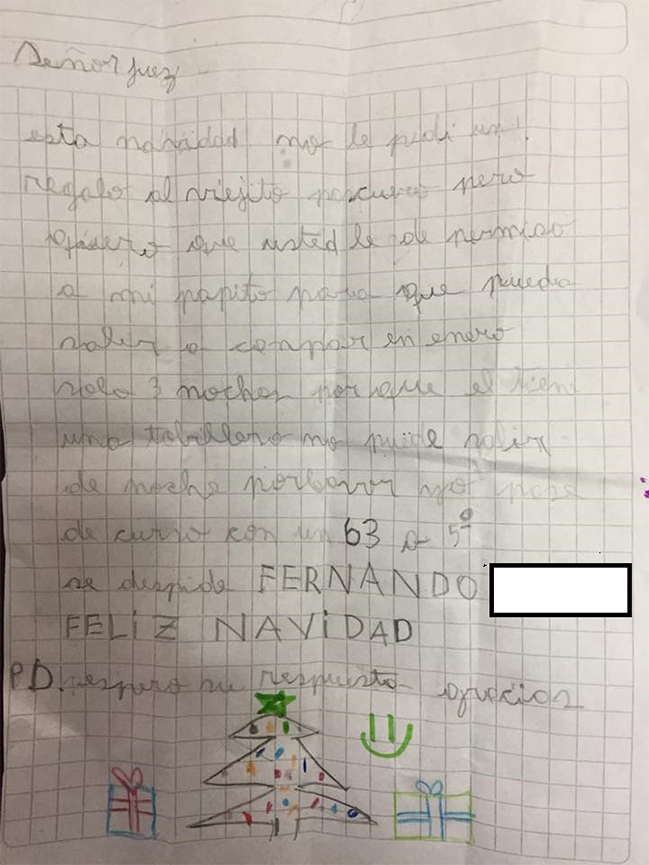 Señor juez
esta navidad no le pedi un
regalo al viejito pascuero pero
quiero que usted le de permiso
a mi papito para que pueda
salir a conpar en enero
solo 3 noches porque el tiene
una tobillera no puede salir
de noche porfavor yo pase
de curso con un 63 a 5º
se despide FERNANDO
FELiZ NAViDAD
PD. espero su respuesta